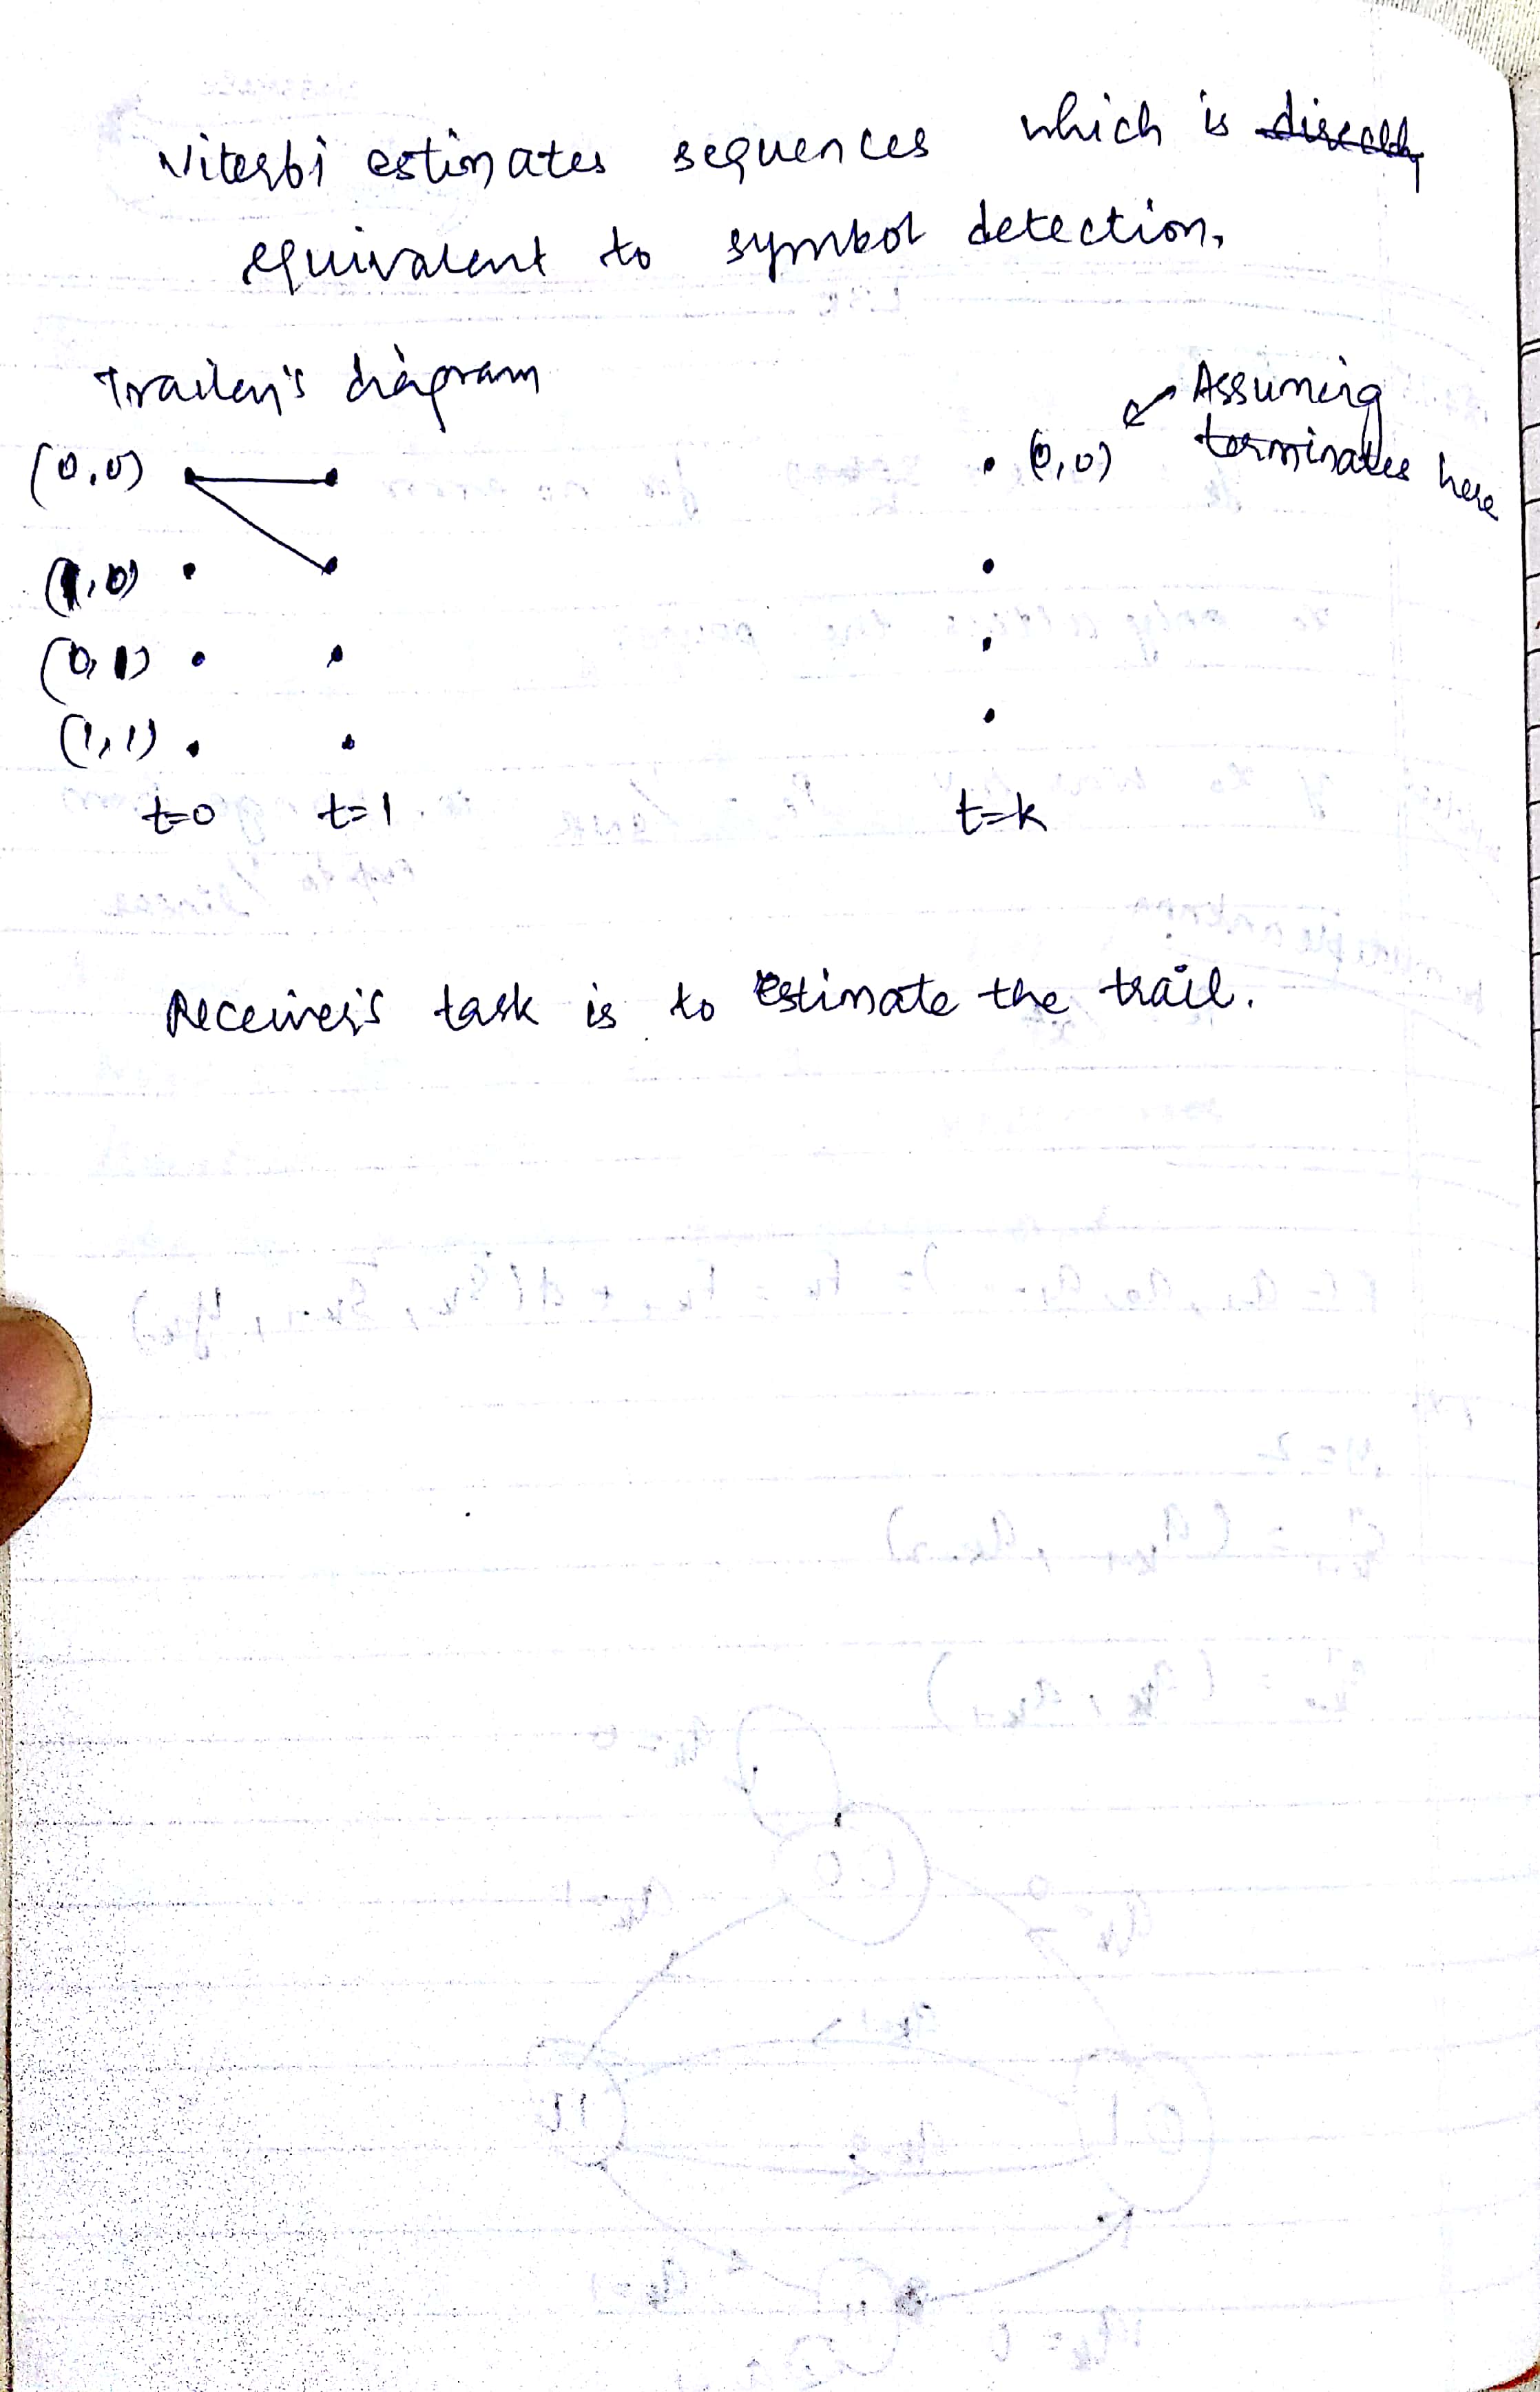 Viterbi estimates sequences which is directly
equivalent to symbol detection.
diagram
(0,0) (0,0) Assuming
terminates here
(1,0)
(0,1)
(1,1)
t=0 t=1 t=k
Receiver's task is to estimate the trail.